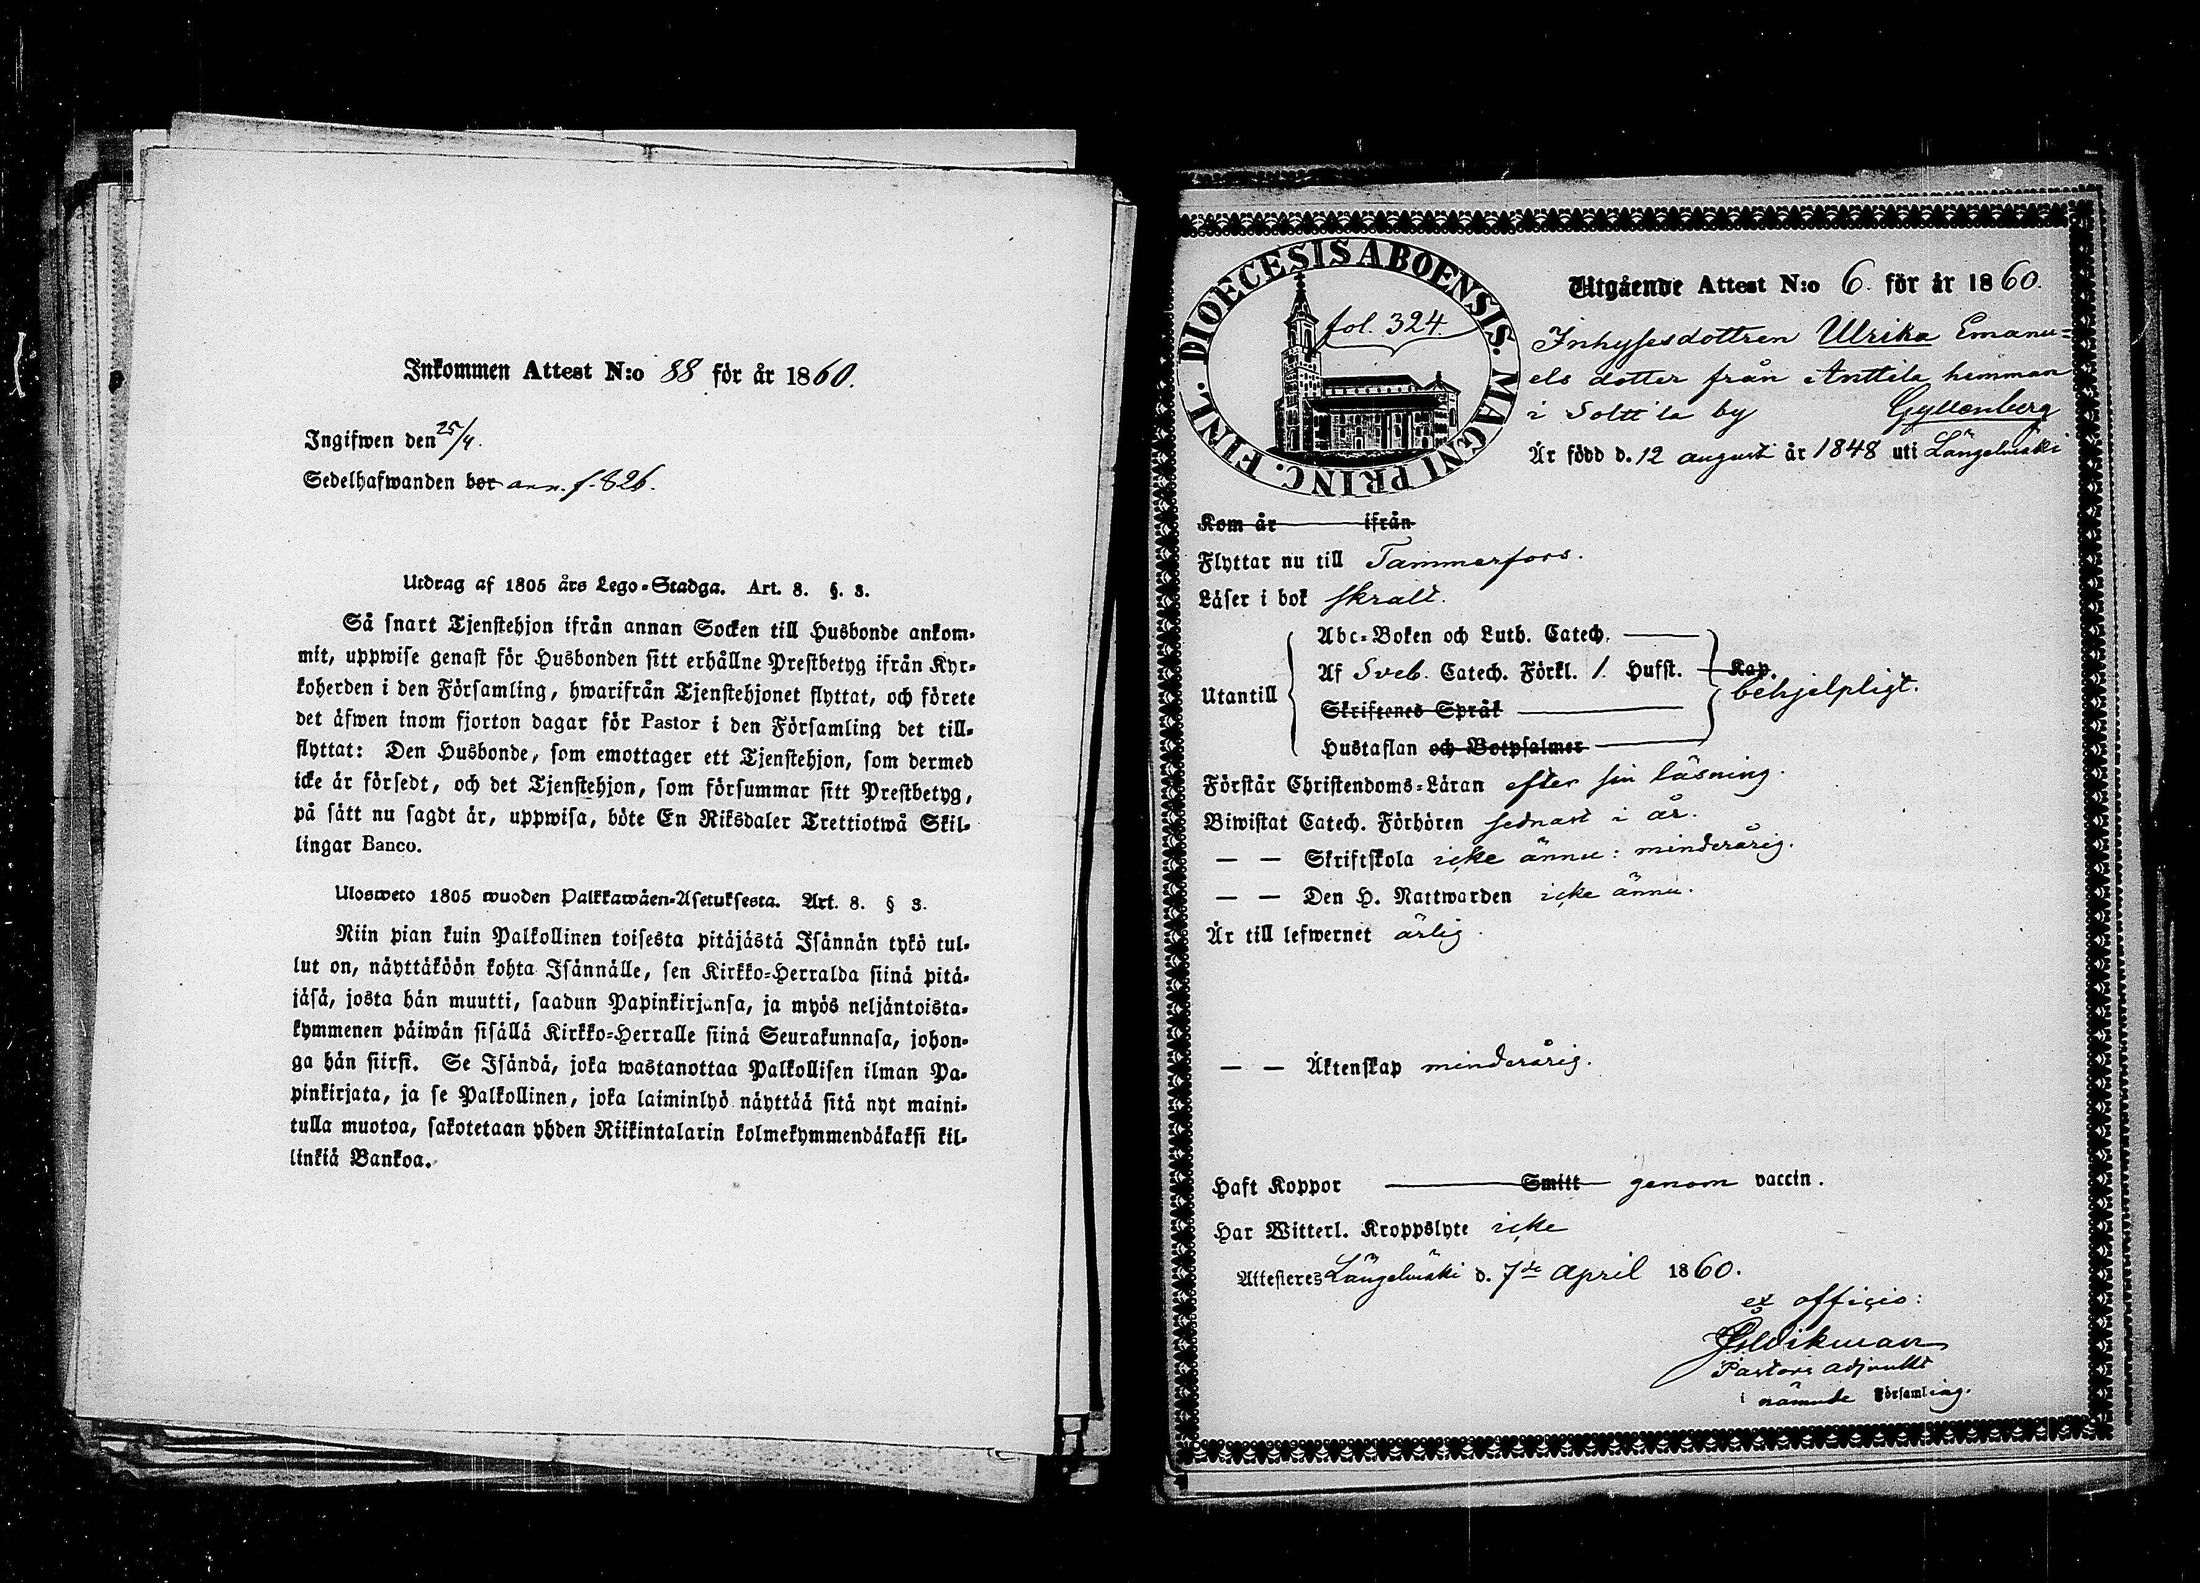 Inkommen Attest N:o 88 för år 1860.
Ingifwen den 25/4.
Sedelhafwanden bor ann. f. 826.
Utdrag af 1805 års Lego-Stadga. Art. 8. §. 3.
Så snart Tjenstehjon ifrån annan Socken till Husbonde ankom-
mit, uppwise genast för Husbonden sitt erhållne Prestbetyg ifrån Kyr-
koherden i den Församling, hwarifrån Tjenstehjonet flyttat, och förete
det äfwen inom fjorton dagar för Pastor i den Församling det till-
flyttat: Den Husbonde, som emottager ett Tjenstehjon, som dermed
icke är försedt, och det Tjenstehjon, som försummar sitt Prestbetyg,
på sätt nu sagdt är, uppwisa, böte En Riksdaler Trettiotwå Skil-
lingar Banco.
Ulosweto 1805 wuoden Palkkawäen-Asetuksesta. Art. 8. § 3.
Niin pian kuin Palkollinen toisesta pitäjästä Isännän tykö tul-
lut on, näyttäköön kohta Isännälle, sen Kirkko-Herralda siinä pitä-
jäsä, josta hän muutti, saadun Papinkirjansa, ja myös neljäntoista-
kymmenen päiwän sisällä Kirkko-Herralle siinä Seurakunnasa, johon-
ga hän siirsi. Se Isändä, joka wastanottaa Palkollisen ilman Pa-
pinkirjata, ja se Palkollinen, joka laiminlyö näyttää sitä nyt maini-
tulla muotoa, sakotetaan yhden Riikintalarin kolmekymmendäkaksi kil-
linkiä Bankoa.
DIOECESIS ABOENSIS. MAGNI PRINC. FINL.
fol. 324
Utgående Attest N:o 6. för år 1860.
Inhysesdottren Ulrika Emanu-
els dotter från Anttila hemman
i Solttila by Gyllenberg
Är född d. 12 august år 1848 uti Längelmäki
Kom år ifrån
Flyttar nu till Tammerfors.
Läser i bok skralt.
Abc-Boken och Luth. Catech.
Af Sveb. Catech. Förkl. 1. Hufst. Kap.
Utantill behjelpligt.
Skriftenes Språk
Hustaflan och Botpsalmer
Förstår Christendoms-Läran efter sin läsning.
Biwistat Catech. Förhören sednast i år.
— — Skriftskola icke ännu: minderårig.
— — Den H. Nattwarden icke ännu.
Är till lefwernet ärlig.
— — Äktenskap minderårig.
Haft Koppor Smitt genom vaccin.
Har Witterl. Kroppslyte icke
Attesteres Längelmäki d. 7de April 1860.
ex officio:
Wikman
Pastors adjunkt
i nämnde Församling.